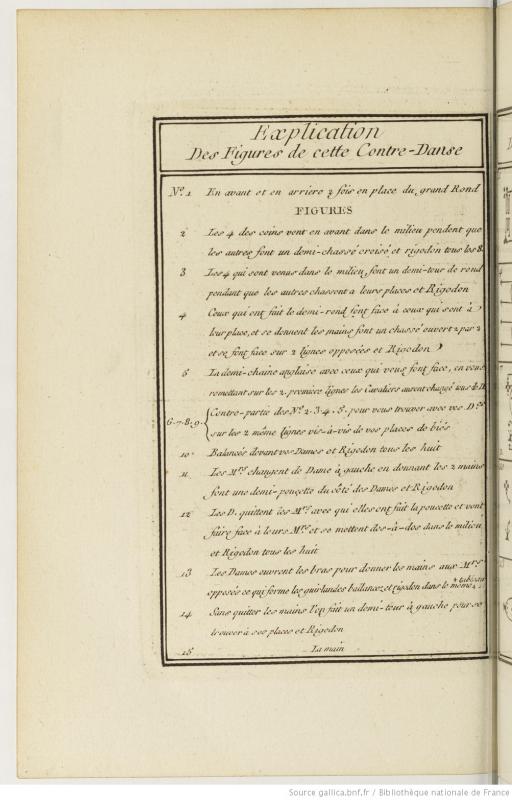 Explication
Des Figures de cette Contre-Danse
Nº. 1 En avant et en arriere 2 fois en place du grand Rond
FIGURES
2 Les 4 des coins vont en avant dans le milieu pendent que
les autres font un demi-chassé croisé et rigodon tous les 8.
3 Les 4 qui sont venus dans le milieu, font un demi-tour de rond
pendant que les autres chassent a leurs places et Rigodon
4 Ceux qui ont fait le demi-rond font face à ceux qui sont à
leur place, et se donnent les mains font un chassé ouvert 2 par 2
et se font face sur 2 lignes opposées et Rigodon
5 La demi-chaine anglaise avec ceux qui vous font face, en vous
remettant sur les 2. premiere lignes les Cavaliers auront changé tous de D.
6.7.8.9. Contre-partie des Nº. 2.3.4.5. pour vous trouver avec vos D.es
sur les 2 même lignes vis-à-vis de vos places de biés
10 Balancés devant vos Dames et Rigodon tous les huit
11 Les Mrs. changent de Dame à gauche en donnant les 2 mains
font une demi-poucette du côté des Dames et Rigodon
12 Les D. quittent les Mrs. avec qui elles ont fait la poucette et vont
faire face à leurs Mrs. et se mettent dos-à-dos dans le milieu
et Rigodon tous les huit
13 Les Dames ouvrent les bras pour donner les mains aux Mrs.
opposés ce qui forme les guirlandes ballancez et rigodon dans le même
14 Sans quitter les mains l'on fait un demi-tour à gauche pour se
trouver à ses places et Rigodon
15 La main
Source gallica.bnf.fr / Bibliothèque nationale de France